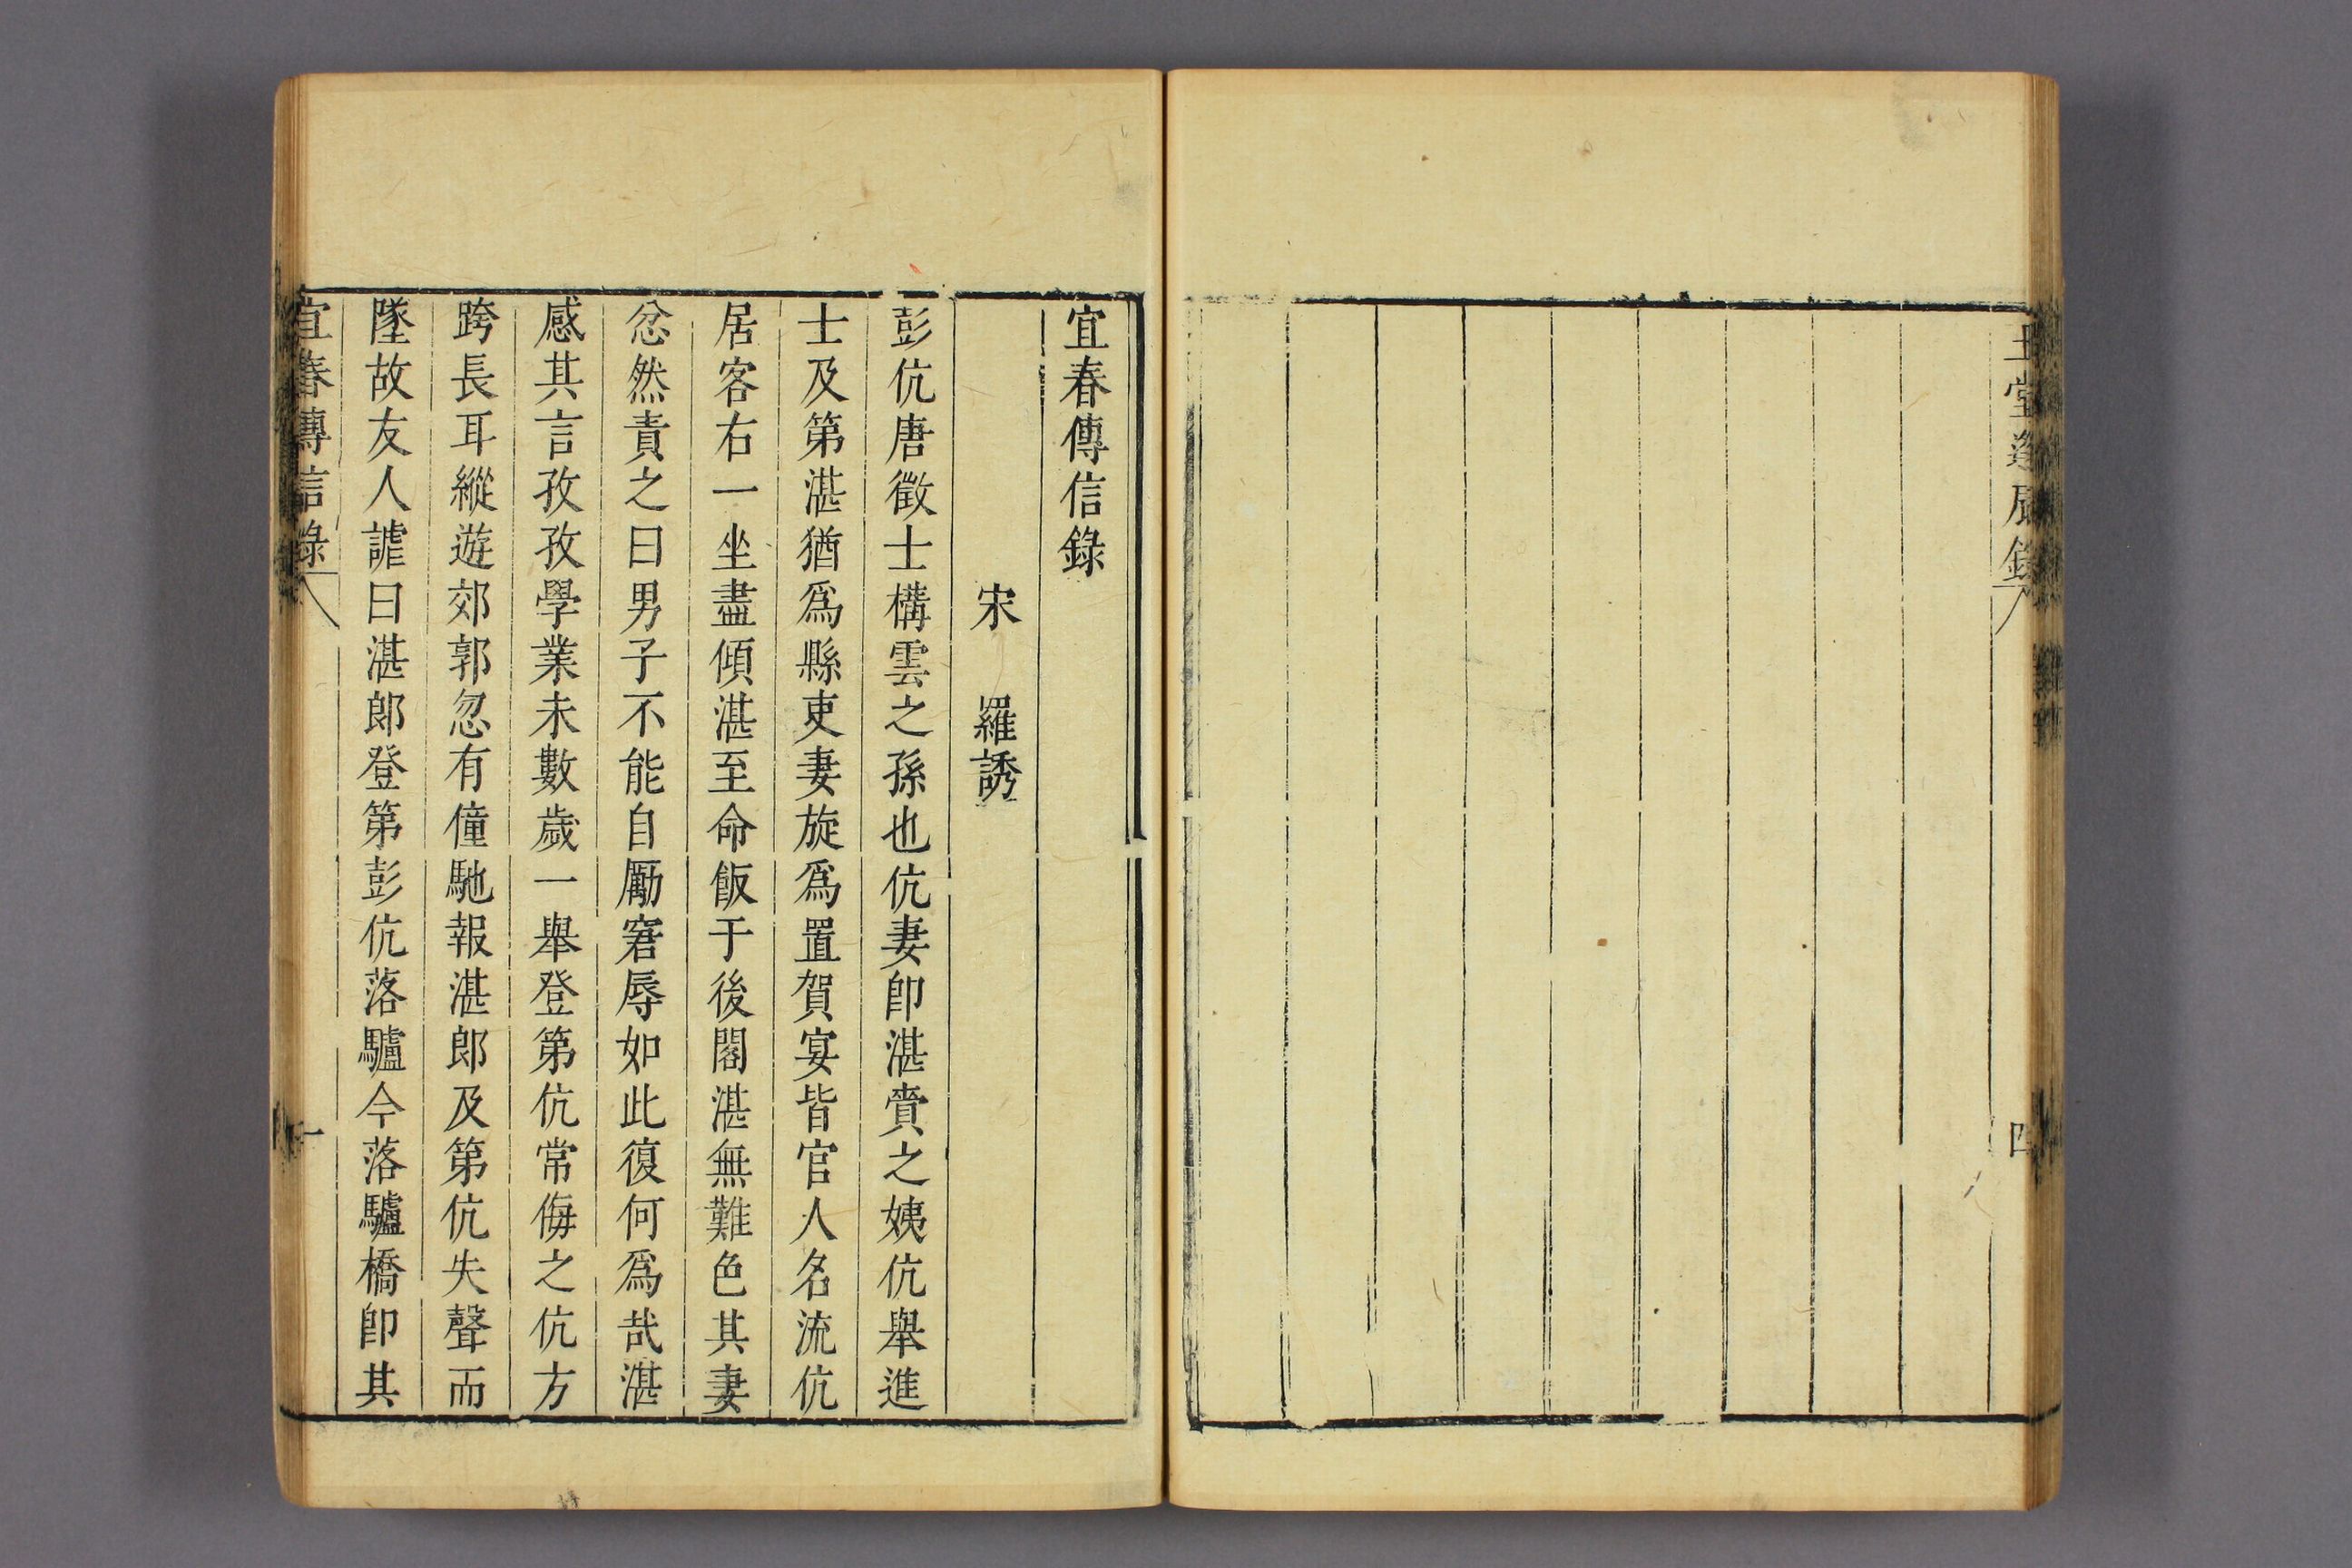 玉堂逢辰錄 四
宜春傳信錄
宋 羅誘
彭伉唐徵士構雲之孫也伉妻卽湛賁之姨伉舉進
士及第湛猶爲縣吏妻旋爲置賀宴皆官人名流伉
居客右一坐盡傾湛至命飯于後閣湛無難色其妻
忿然責之曰男子不能自勵窘辱如此復何爲哉湛
感其言孜孜學業未數歲一舉登第伉常侮之伉方
跨長耳縱遊郊郭忽有僮馳報湛郞及第伉失聲而
墜故友人謔曰湛郞登第彭伉落驢今落驢橋卽其
宜春傳信錄 一